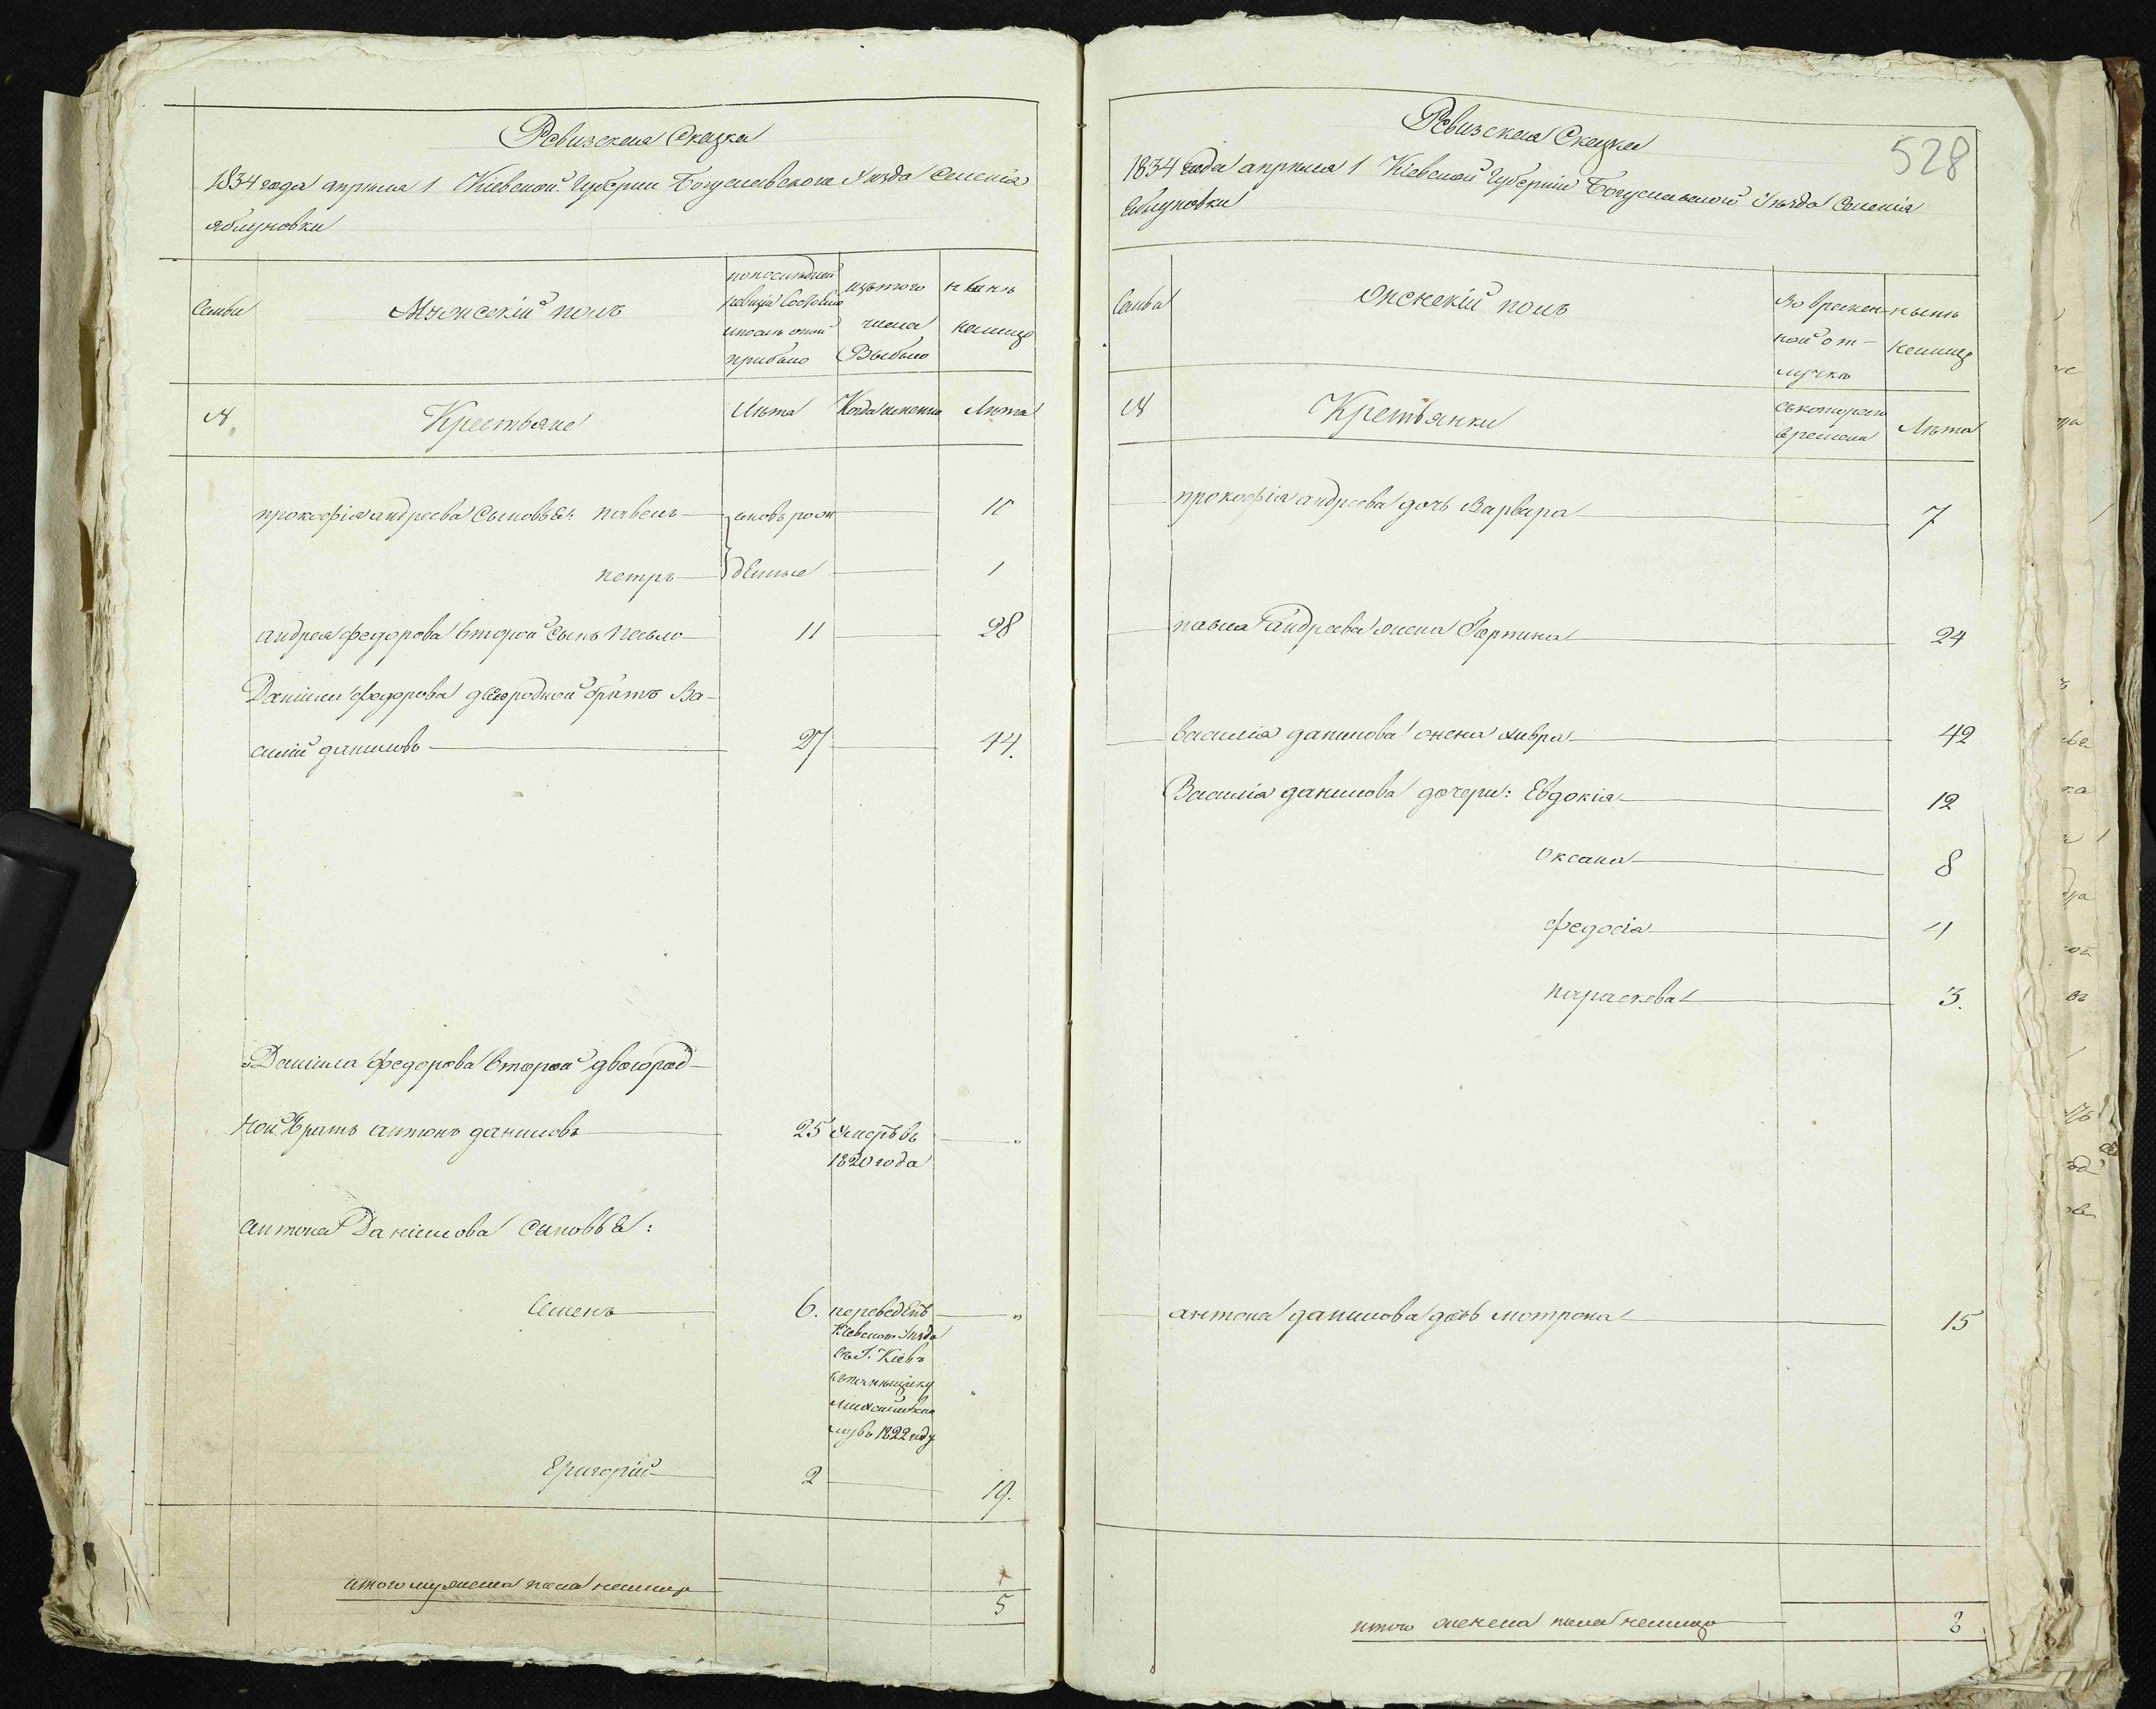 Ревизская Сказка
1834 года апреля 1 Кіевской Губерніи Богуславского Уѣзда Селенія
яблуновки
Семьи
Мужескій полъ
по последней
ревизіи Состояло
и после оной
прибыло
изъ того
числа
Выбыло
н ынѣ
налицо
№
Крестьяне
Лѣта
Когда именно
Лѣта
прокофія андреева Сыновья: павелъ
вновь рож
10
петръ
денные
1
андрея федорова второй Сынъ Павло
11
28
Даніила федорова двоюродной братъ Ва-
силій даниловъ
27
44.
Даніила федорова второй двоюрод-
ной братъ антонъ даниловъ
25
умеръ въ
1820 года
"
антона Даніилова сыновья:
Семенъ
6.
переведенъ
Кіевского Уѣзда
въ Г. Кіевъ
въ 1822 году
"
Григорій
2
19.
итого мужеска пола налицо
5
528
Ревизская Сказка
1834 года апреля 1 Кіевской Губерніи Богуславской Уѣзда Селенія
Яблуновки
Семьи
Женскій полъ
Во времен-
ной от-
лучкѣ
нынѣ
налицо
№
Крестьянки
съ котораго
времени
Лѣта
прокофія андреева дочь Варвара
7
павла андреева жена Горпина
24
василія данилова жена хивра
42
Василія данилова дочери: Евдокія
12
Оксана
8
федосія
11
параскева
3.
антона данилова дочь мотрона
15
итого женска пола налицо
8